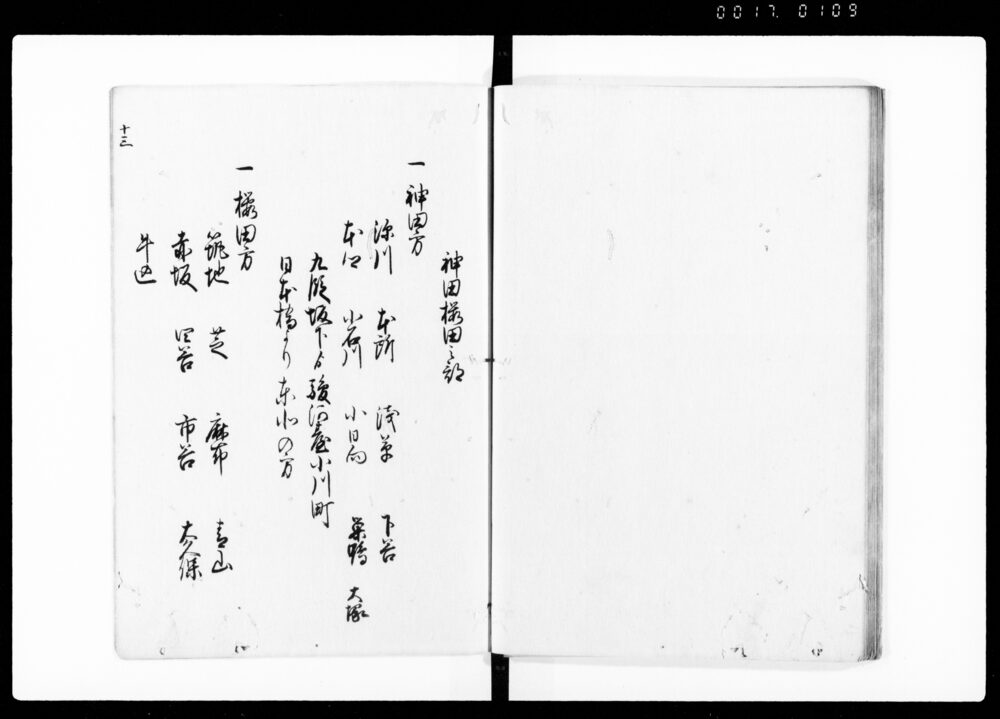 0017.0109
神田桜田之部
一 神田方
深川 本所 浅草 下谷
本江 小石川 小日向 巣鴨 大塚
九段坂下ゟ駿河臺小川町
日本橋より東北の方
一 桜田方
築地 芝 麻布 青山
赤坂 四谷 市谷 大久保
牛込
十三